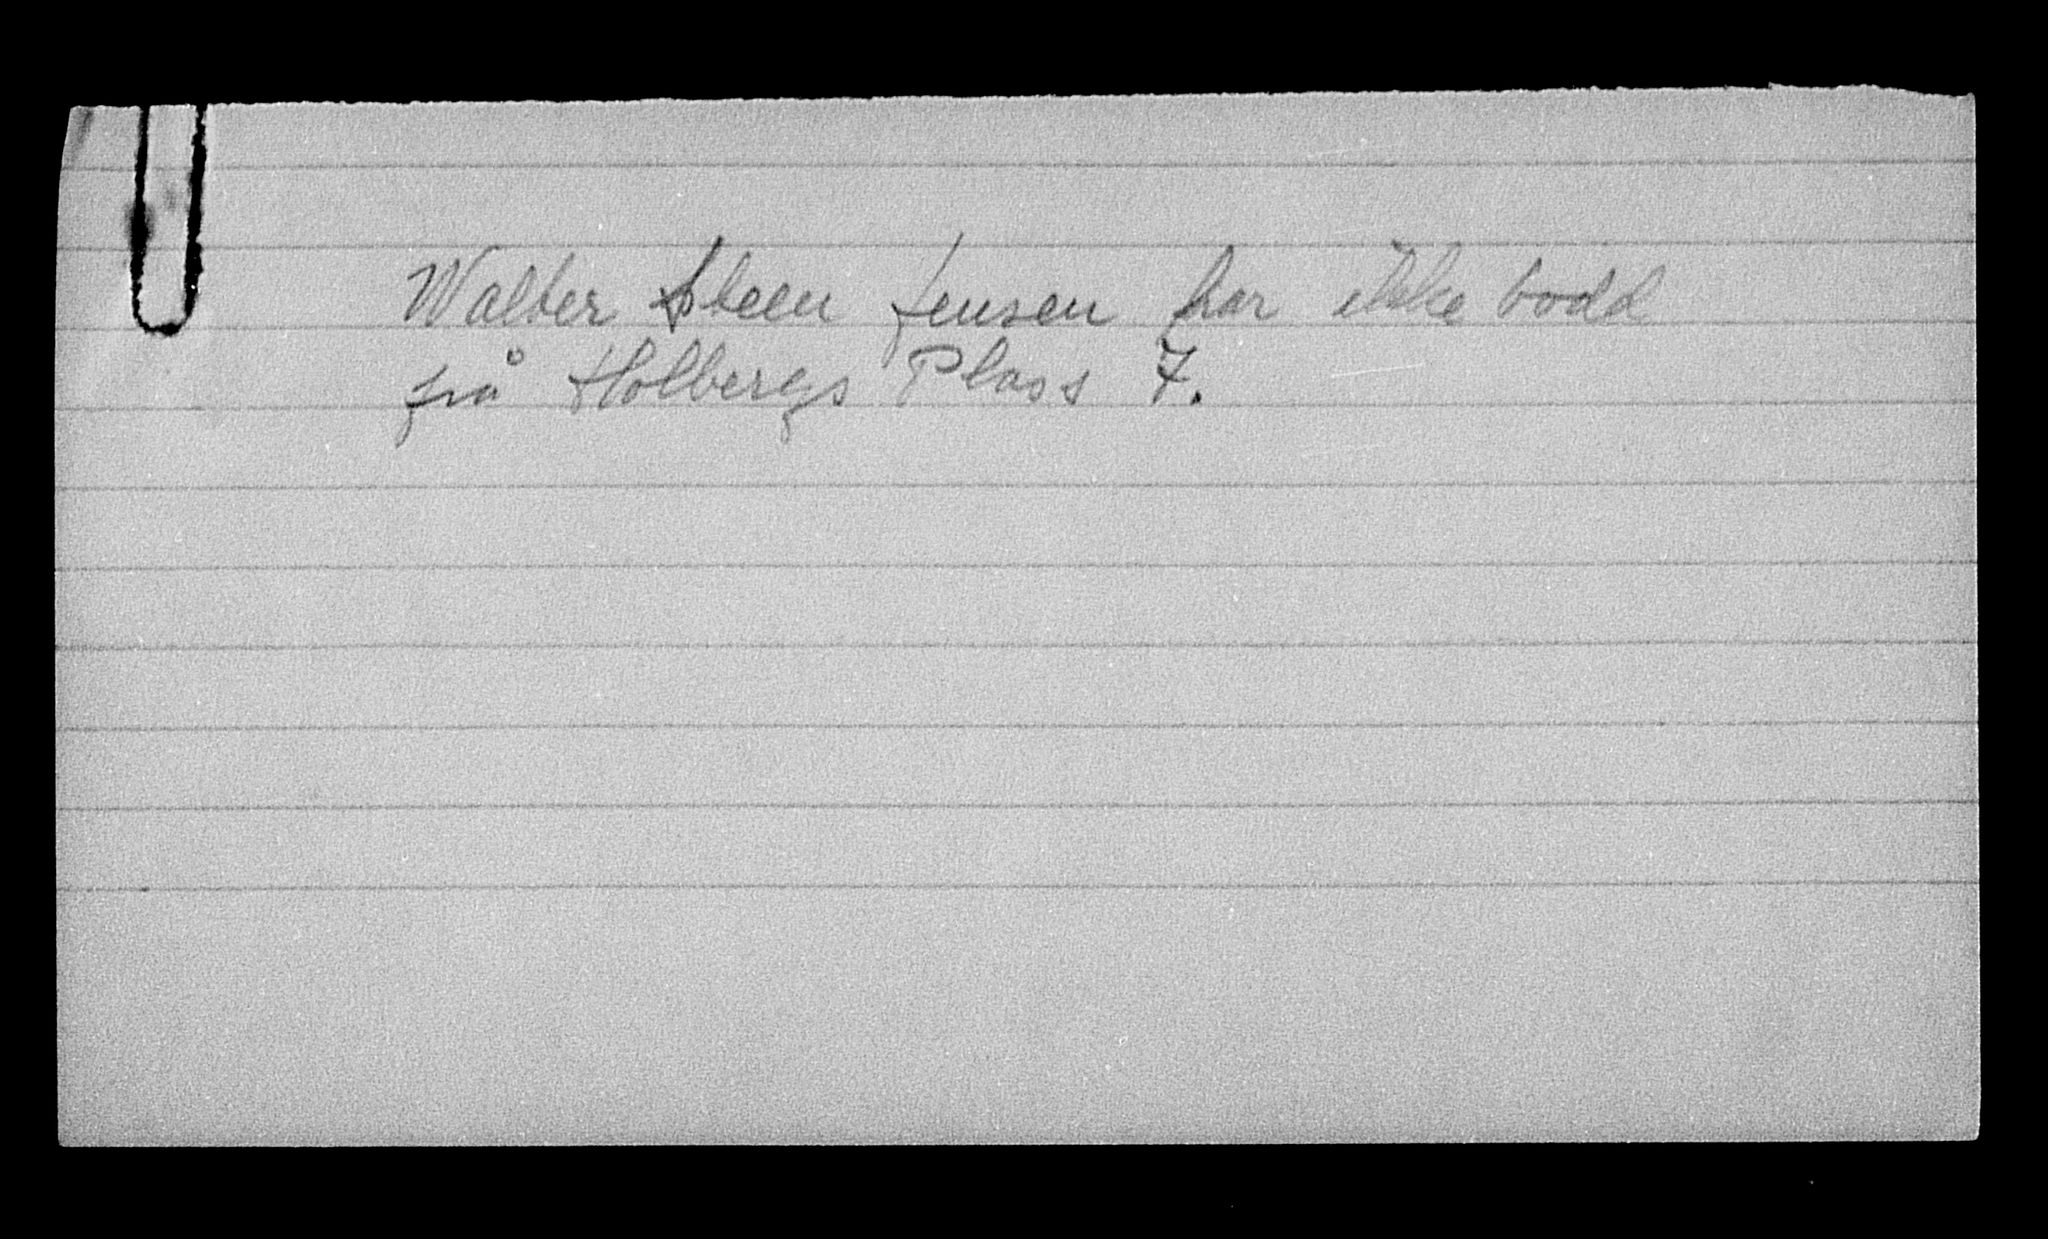 Walter Steen Jensen har ikke bodd
på Holbergs Plass 7.